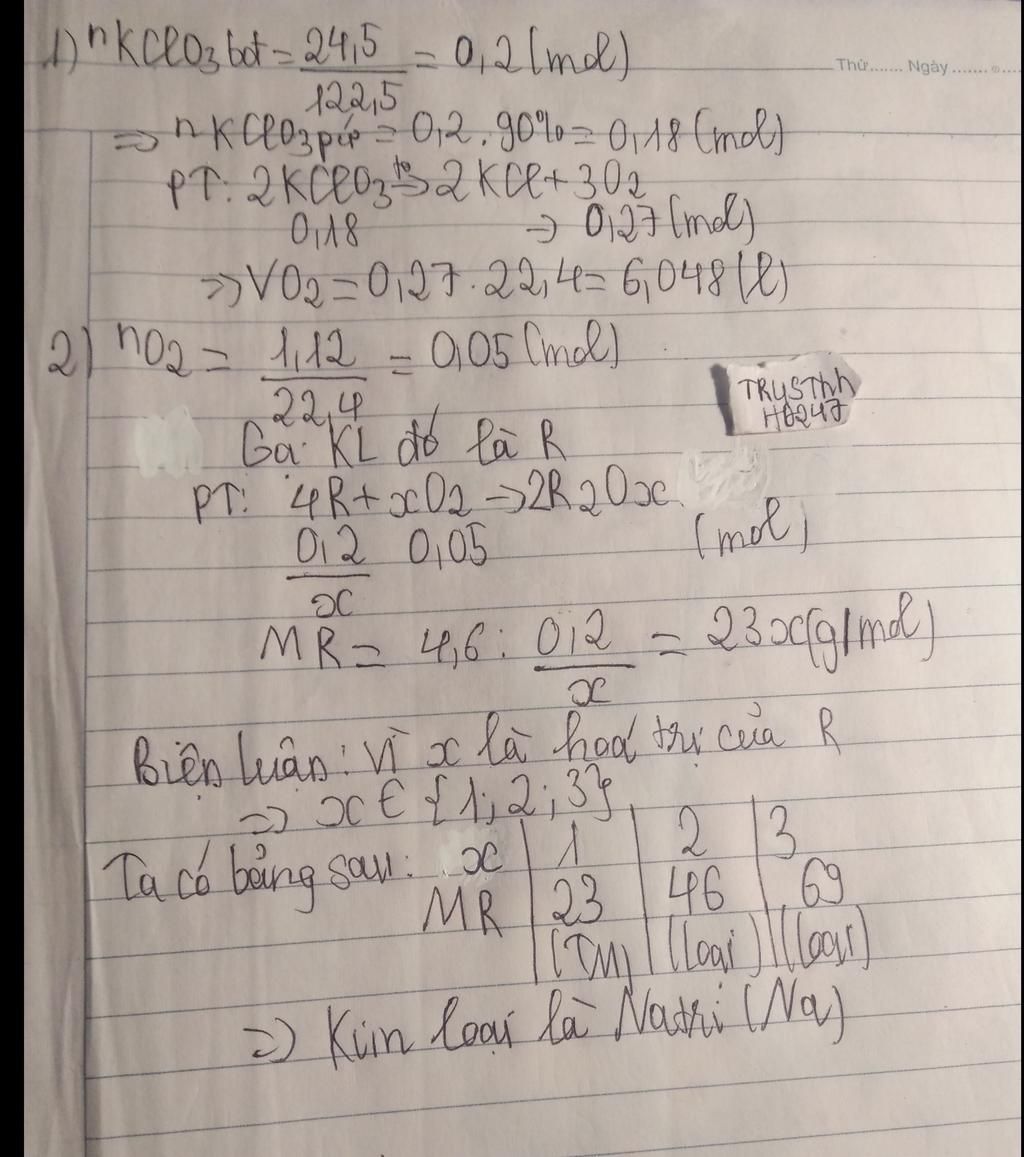 Thứ....... Ngày.......
1) nKClO3 bđ = 24,5/122,5 = 0,2 (mol)
=> nKClO3 pứ = 0,2 . 90% = 0,18 (mol)
PT: 2KClO3 t°→ 2KCl + 3O2
0,18 → 0,27 (mol)
=> VO2 = 0,27 . 22,4 = 6,048 (l)
2) nO2 = 1,12/22,4 = 0,05 (mol)
TRySThh
H6247
Gọi KL đó là R
PT: 4R + xO2 → 2R2Ox
0,2/x 0,05 (mol)
MR = 4,6 : 0,2/x = 23x (g/mol)
Biện luận: Vì x là hoá trị của R
=> x ∈ {1; 2; 3}
Ta có bảng sau: x | 1 | 2 | 3
MR | 23 | 46 | 69
(TM) | (loại) | (loại)
=> Kim loại là Natri (Na)